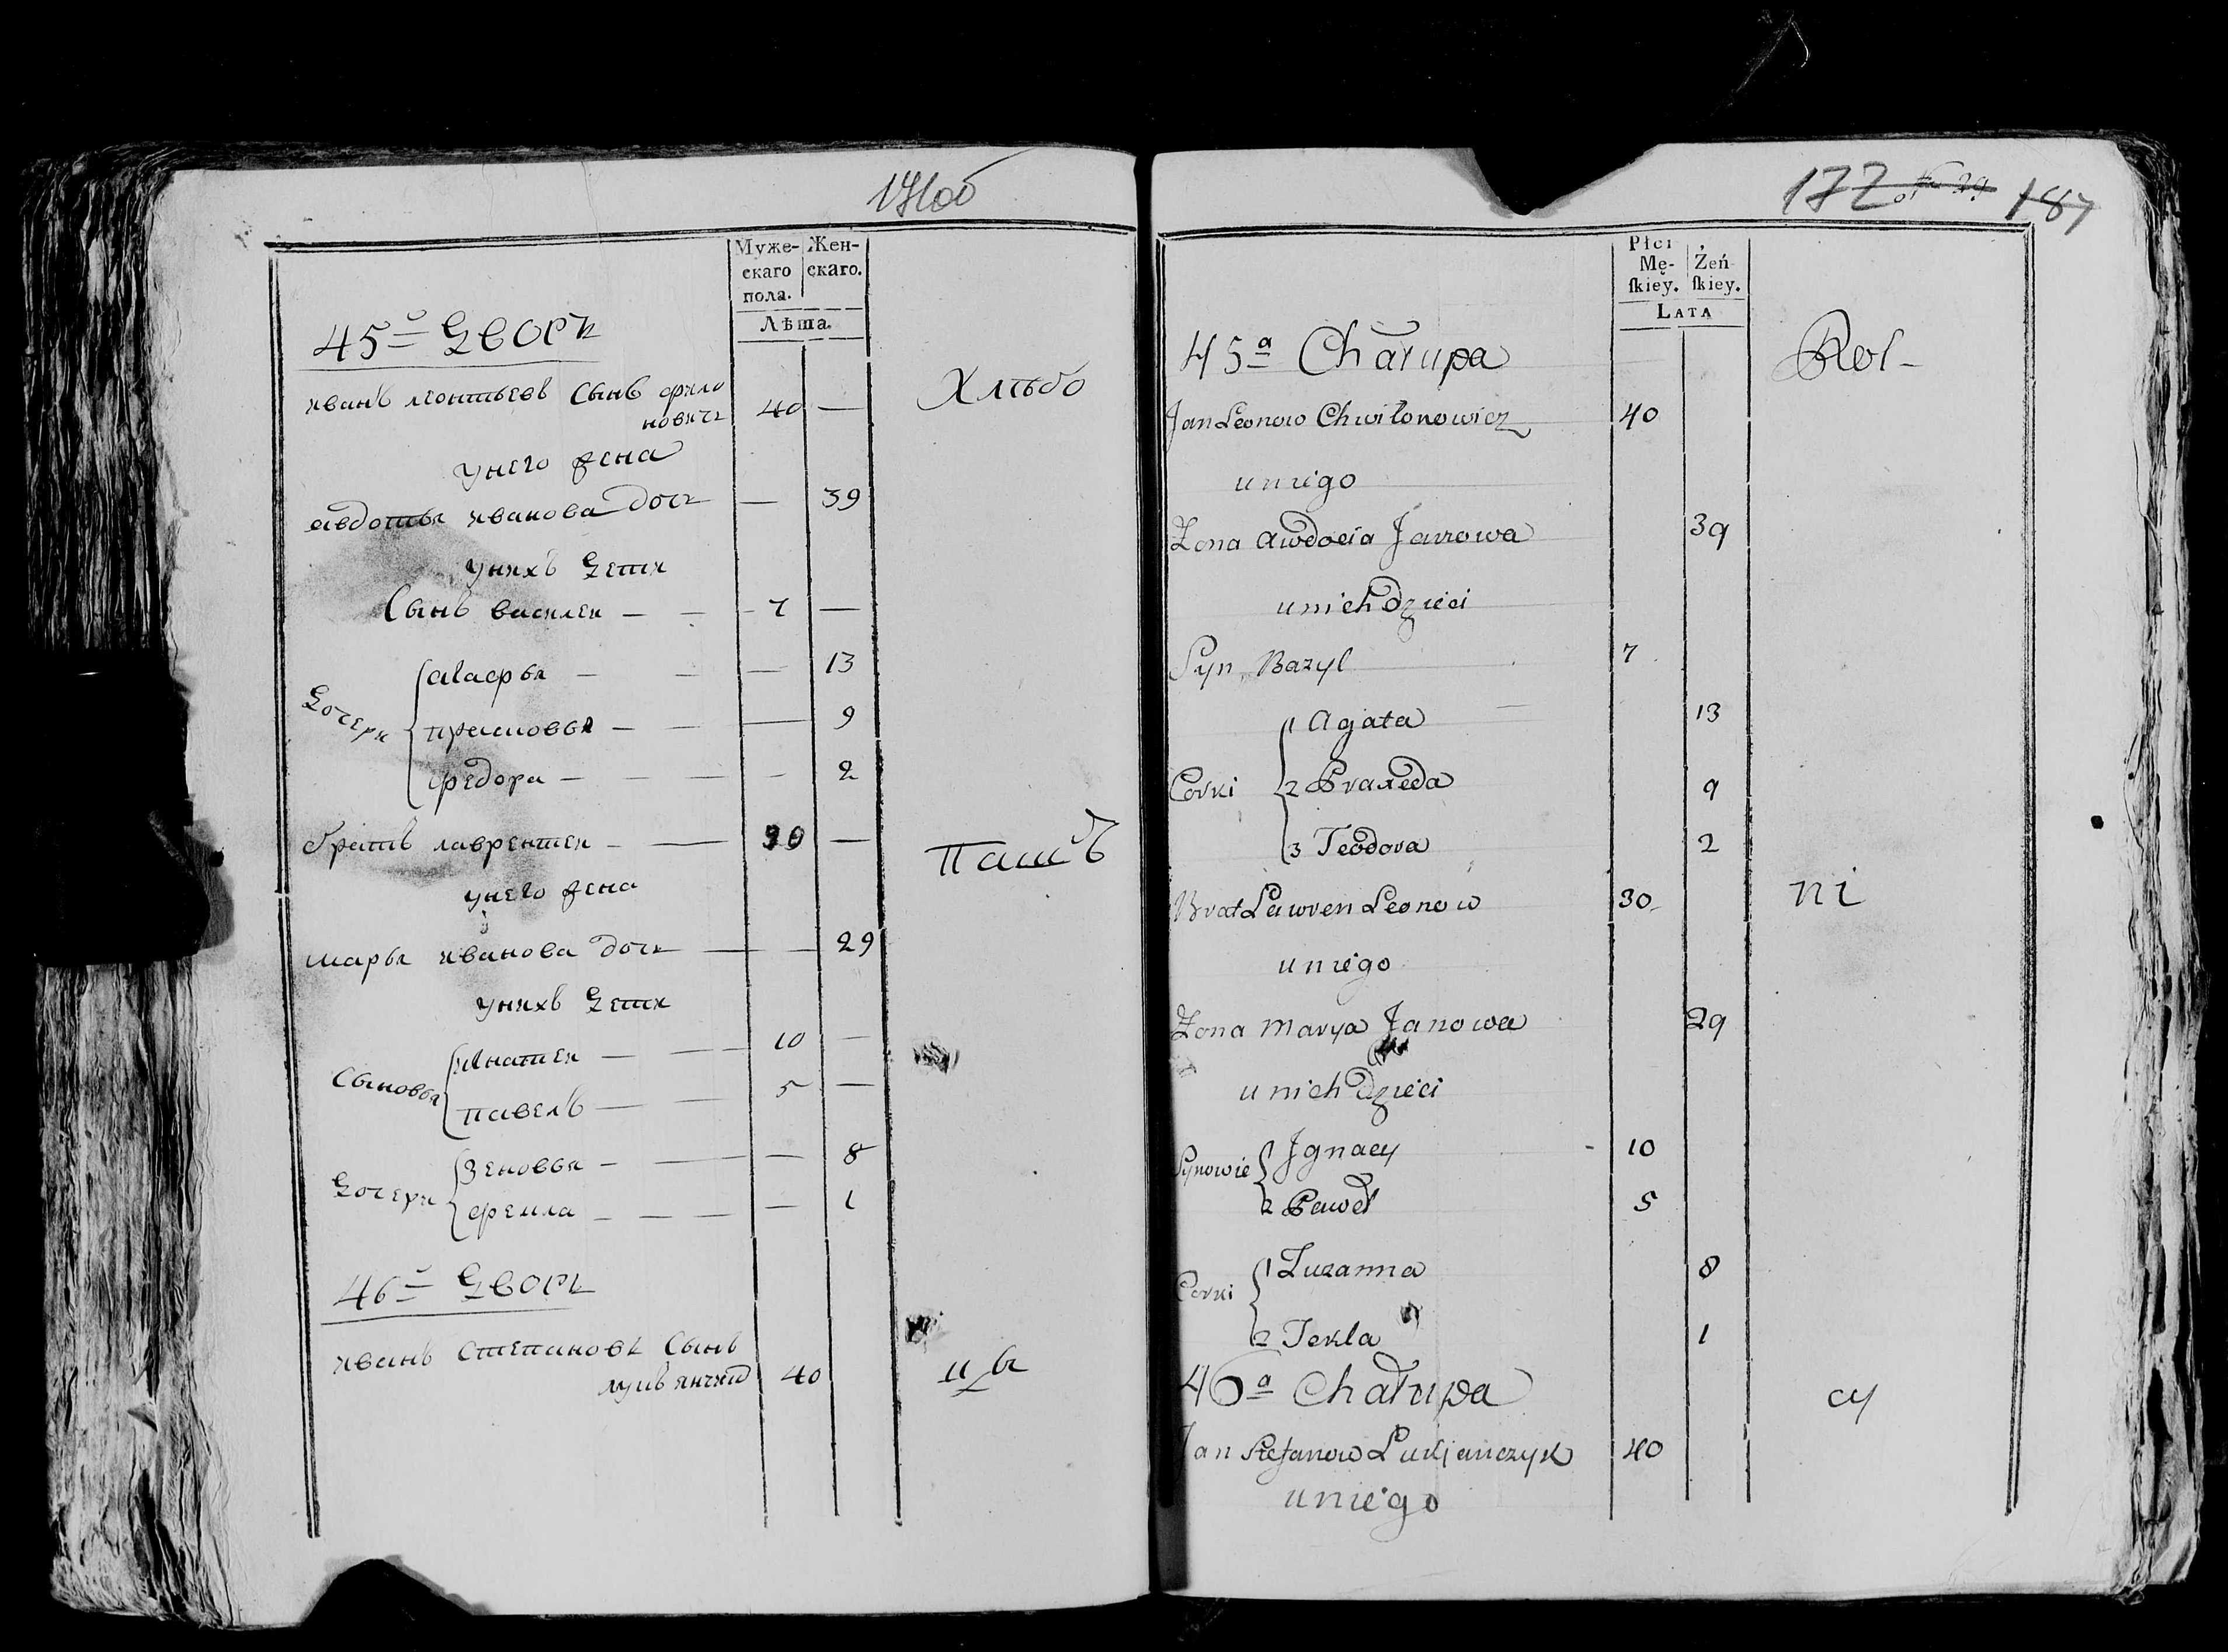 171об
Муже-
скаго
пола.
Жен-
скаго.
Лѣта.
45й дворъ
иванъ леонтьевъ Сынъ фило
новичъ 40 —
Хлѣбо
унего жена
авдотья иванова дочь — 39
унихъ дети
Сынъ василеи — — 7 —
дочери
агафья — — — 13
прасковья — — — 9
федора — — — — 2
братъ лаврентеи — — 30 —
Пашъ
унего жена
марья иванова дочь — — 29
унихъ дети
Сыновья
игнатеи — — 10 —
павелъ — — 5 —
дочери
Зеновья — — — 8
фекла — — — — 1
46й дворъ
иванъ Степановъ Сынъ
лукьянчикъ 40
цы
172 187
Płci
Mę-
ſkiey.
Żeń
ſkiey.
LATA
45a Chałupa
Rol-
Jan Leonow Chwilonowicz 40
uniego
Zona Awdocia Janowa 39
unich dzieci
Syn Bazyl 7
Corki
1 Agata 13
2 Praxeda 9
3 Teodora 2
Brat Lawren Leonow 30
ni
uniego
Zona Marya Janowa 29
unich dzieci
Synowie
Jgnacy 10
2 Paweł 5
Corki
1 Zuzanna 8
2 Tekla 1
46a Chałupa
cy
Jan Stefanow Lukjanczyk 40
uniego